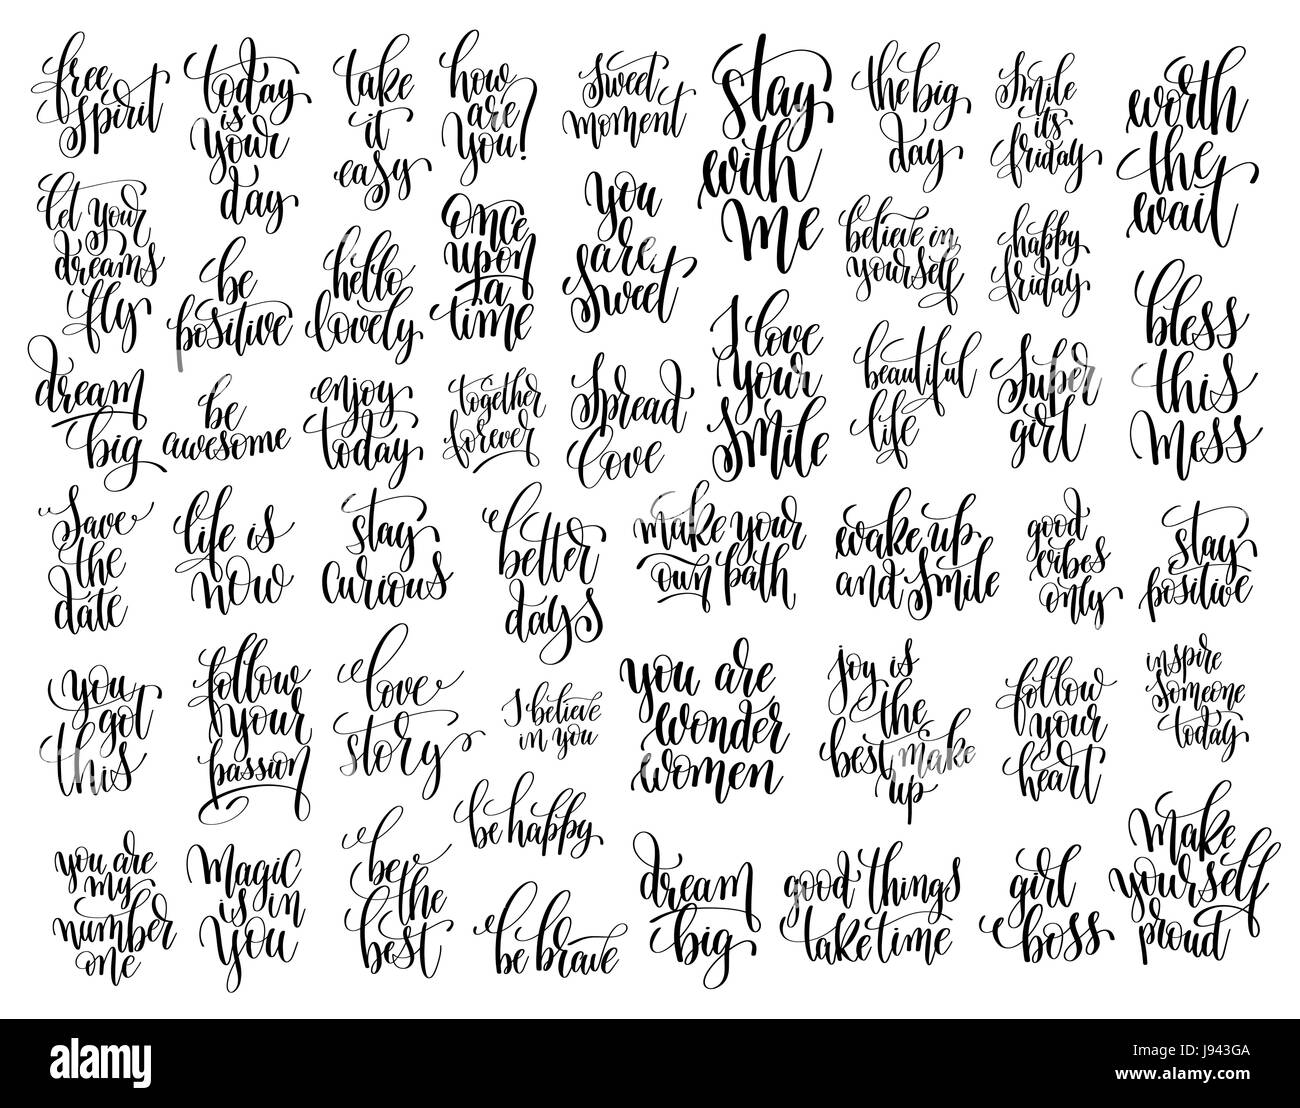 free
spirit
today
is
your
day
take
it
easy
how
are
you?
sweet
moment
stay
with
me
the big
day
smile
its
friday
worth
the
wait
let your
dreams
fly
be
positive
hello
lovely
once
upon
a
time
you
are
sweet
believe in
yourself
happy
friday
bless
this
mess
dream
big
be
awesome
enjoy
today
together
forever
spread
love
I love
your
smile
beautiful
life
super
girl
save
the
date
life is
now
stay
curious
better
days
make your
own path
wake up
and smile
good
vibes
only
stay
positive
you
got
this
follow
your
passion
love
story
I believe
in you
you are
wonder
women
joy is
the
best make
up
follow
your
heart
inspire
someone
today
be happy
you are
my
number
one
magic
is in
you
be
the
best
be brave
dream
big
good things
take time
girl
boss
make
yourself
proud
alamy
Image ID: J943GA
www.alamy.com